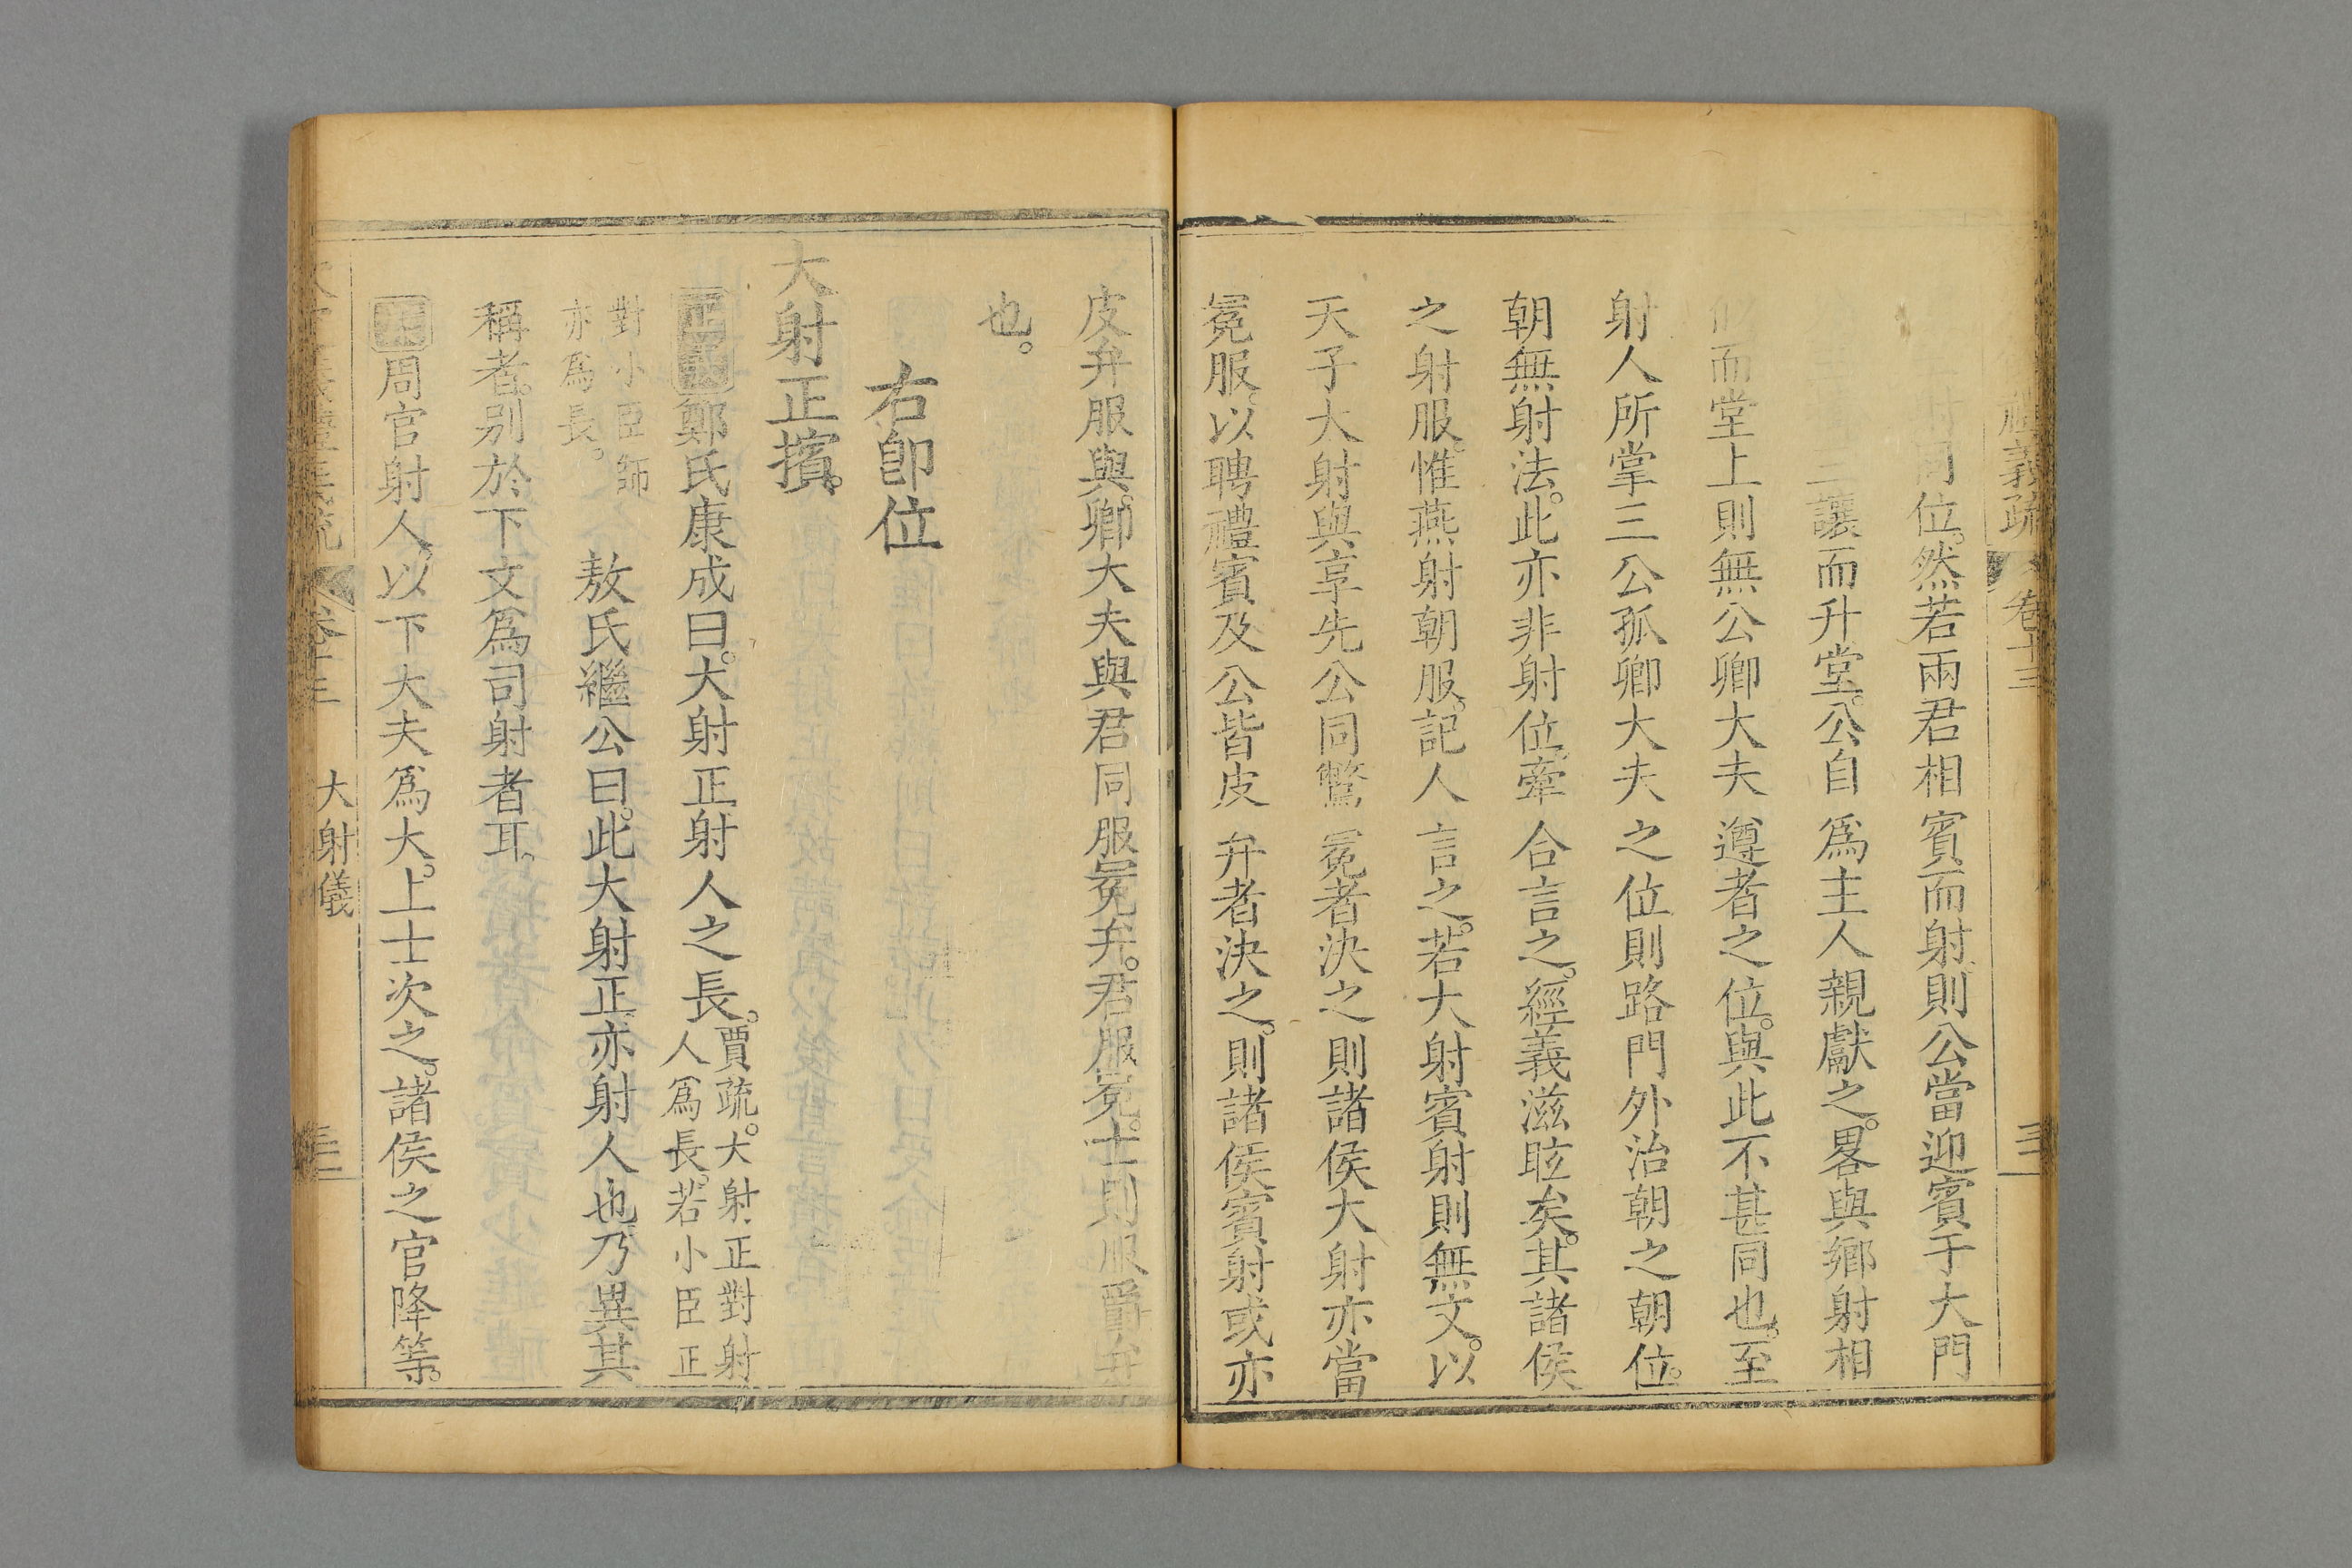 禮義疏 卷十三
同位。然若兩君相賓而射。則公當迎賓于大門
三讓而升堂。公自為主人親獻之。畧與鄉射相
而堂上則無公卿大夫遵者之位。與此不甚同也。至
射人所掌三公孤卿大夫之位則路門外治朝之朝位。
朝無射法。此亦非射位。牽合言之。經義滋眩矣。其諸侯
之射服。惟燕射朝服。記人言之。若大射賓射則無文。以
天子大射與享先公同鷩冕者決之。則諸侯大射亦當
冕服。以聘禮賓及公皆皮弁者決之。則諸侯賓射或亦
皮弁服與。卿大夫與君同服冕弁。君服冕。士則服爵弁
也。
右卽位
大射正擯。
正義鄭氏康成曰。大射正射人之長。賈疏。大射正對射
人爲長。若小臣正
對小臣師
亦爲長。
敖氏繼公曰。此大射正亦射人也。乃異其
稱者。别於下文爲司射者耳。
周官射人。以下大夫爲大。上士次之。諸侯之官降等。
卷十三 大射儀